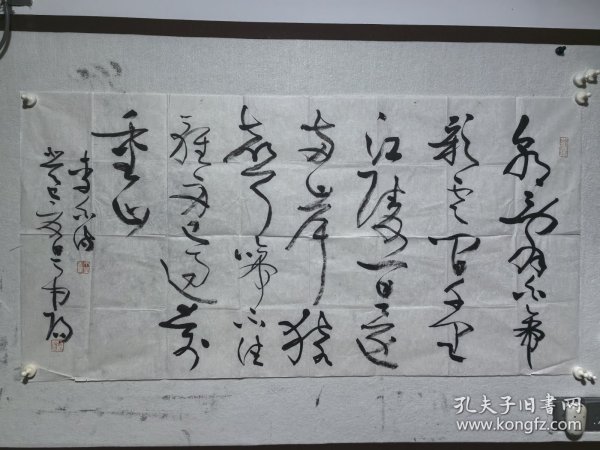 朝辞白帝
彩雲間千里
江陵一日還
兩岸猿
聲啼不住
輕舟已過萬
重山
李白詩
孔夫子旧书网
www.kongfz.com